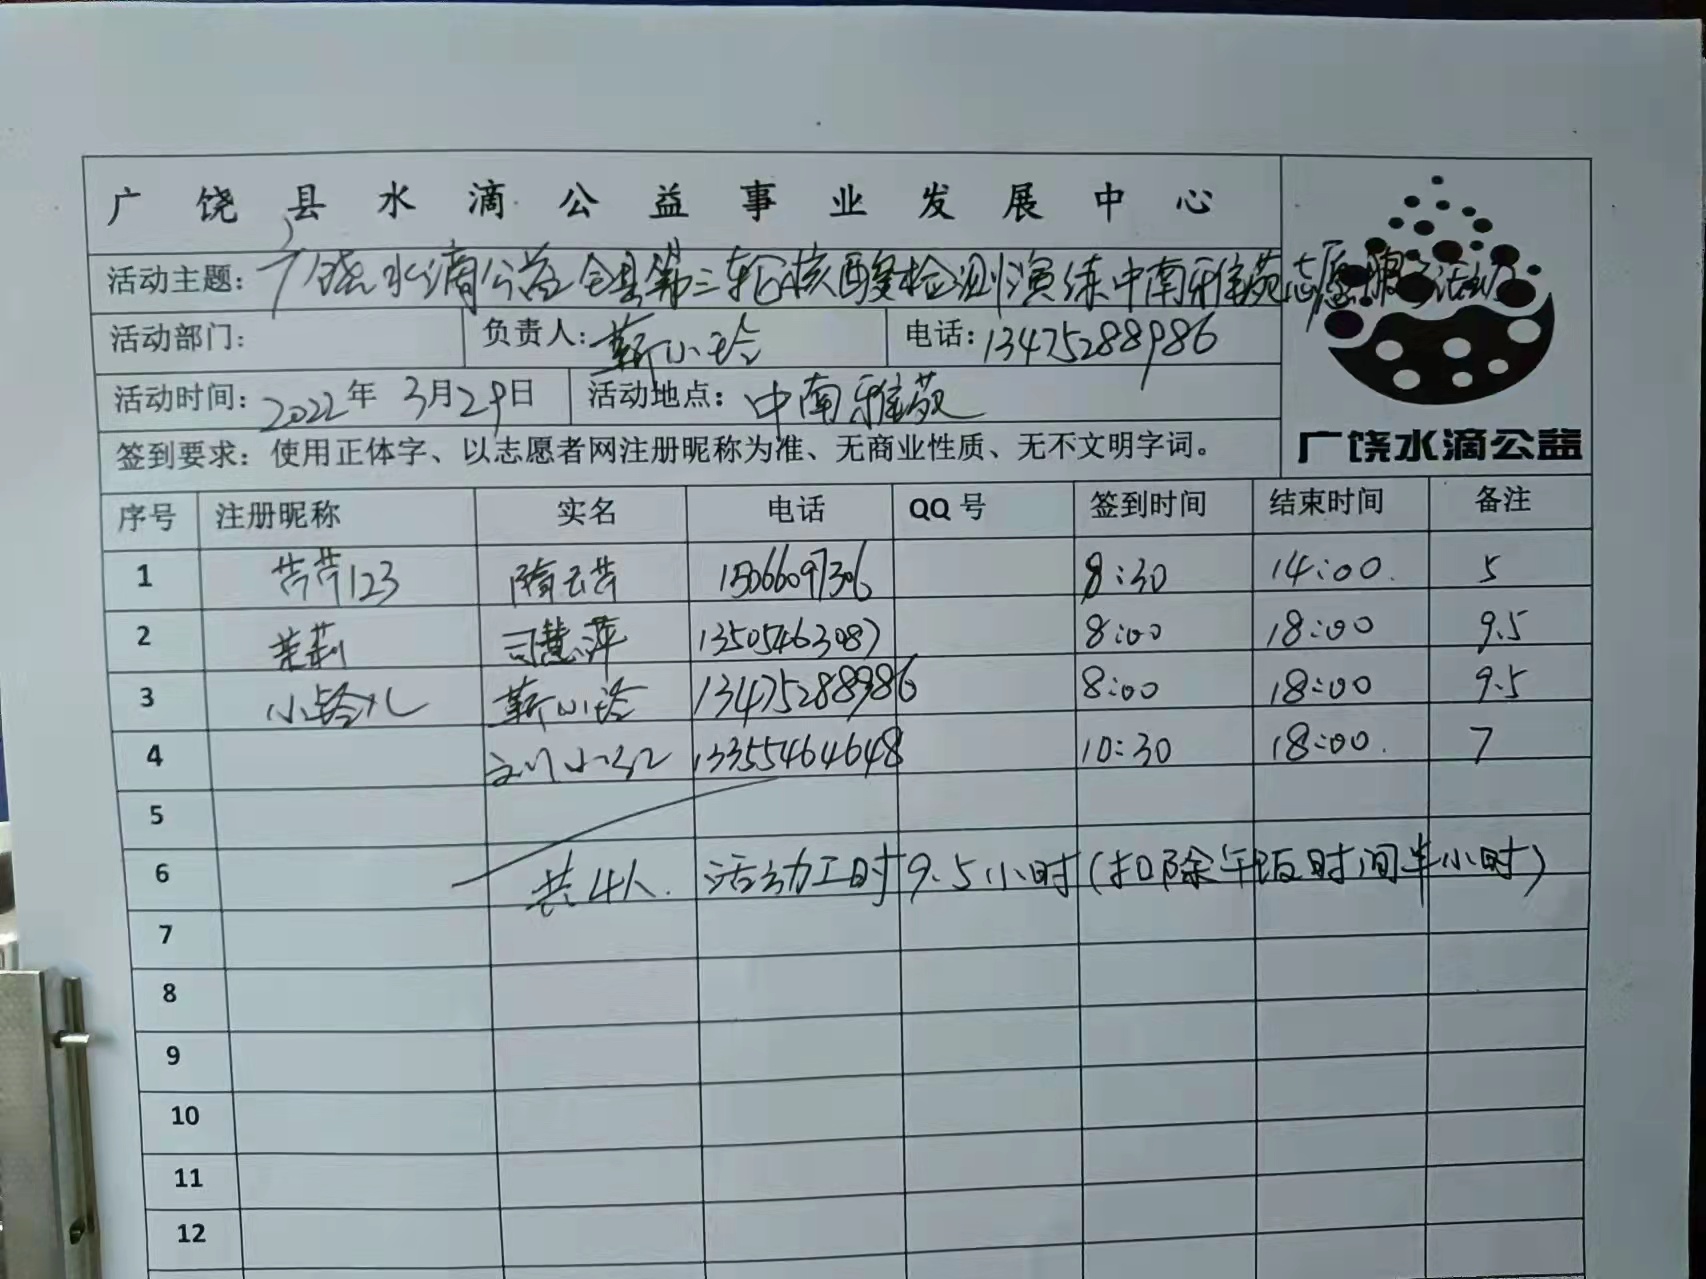 广饶县水滴公益事业发展中心
活动主题：广饶水滴公益全县第三轮核酸检测演练中南雅苑志愿服务活动
活动部门： 负责人：靳小玲 电话：13475288986
活动时间：2022年3月29日 活动地点：中南雅苑
签到要求：使用正体字、以志愿者网注册昵称为准、无商业性质、无不文明字词。
广饶水滴公益
序号 注册昵称 实名 电话 QQ号 签到时间 结束时间 备注
1 芹芹123 隋云芹 15066097306 8:30 14:00. 5
2 茉莉 司慧萍 13505463087 8:00 18:00 9.5
3 小铃儿 靳小玲 13475288986 8:00 18:00 9.5
4 13355464648 10:30 18:00. 7
5
6 共4人. 活动工时9.5小时(扣除午饭时间半小时)
7
8
9
10
11
12